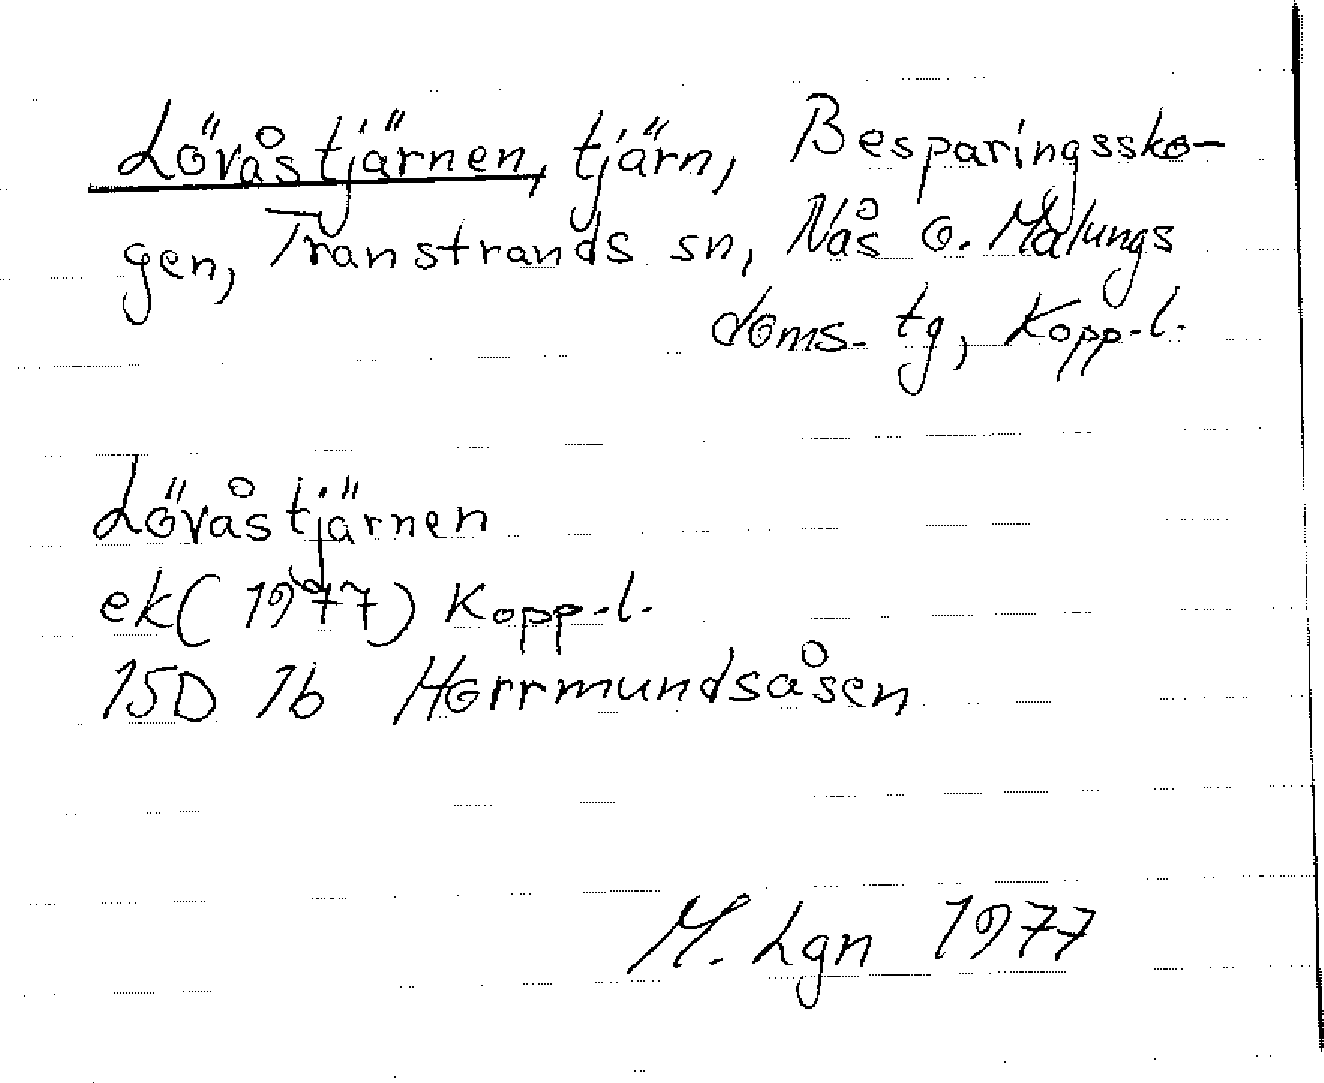 Lövåstjärnen, tjärn, Besparingssko-
gen, Transtrands sn, Nås o. Malungs
doms. tg, Kopp.l.
Lövåstjärnen
ek(1977) Kopp.l.
15D 1b Horrmundsåsen
M. Lgn 1977